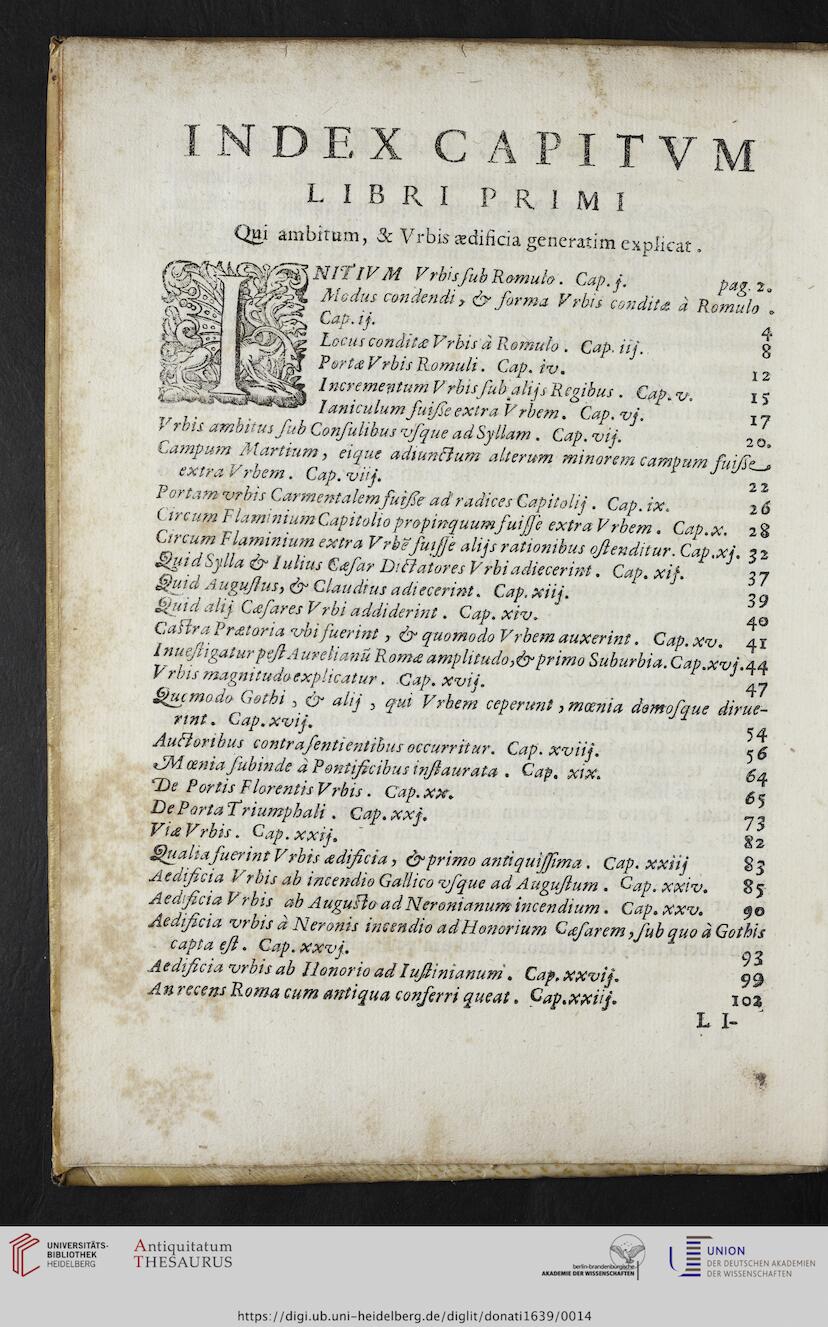 INDEX CAPITVM
LIBRI PRIMI
Qui ambitum, & Vrbis ædificia generatim explicat.
INITIVM Vrbis ſub Romulo. Cap. j. pag. 2.
Modus condendi, & forma Vrbis conditæ à Romulo.
Cap. ij. 4
Locus conditæ Vrbis à Romulo. Cap. iij. 8
Portæ Vrbis Romuli. Cap. iv. 12
Incrementum Vrbis ſub alijs Regibus. Cap. v. 15
Ianiculum fuiſſe extra Vrbem. Cap. vj. 17
Vrbis ambitus ſub Conſulibus vſque ad Syllam. Cap. vij. 20.
Campum Martium, eique adiunctum alterum minorem campum fuiſſe
extra Vrbem. Cap. viij. 22
Portam vrbis Carmentalem fuiſſe ad radices Capitolij. Cap. ix. 26
Circum Flaminium Capitolio propinquum fuiſſe extra Vrbem. Cap. x. 28
Circum Flaminium extra Vrbē fuiſſe alijs rationibus oſtenditur. Cap. xj. 32
Quid Sylla & Iulius Cæſar Dictatores Vrbi adiecerint. Cap. xij. 37
Quid Auguſtus, & Claudius adiecerint. Cap. xiij. 39
Quid alij Cæſares Vrbi addiderint. Cap. xiv. 40
Caſtra Prætoria vbi fuerint, & quomodo Vrbem auxerint. Cap. xv. 41
Inueſtigatur poſt Aurelianū Romæ amplitudo, & primo Suburbia. Cap. xvj. 44
Vrbis magnitudo explicatur. Cap. xvij. 47
Quomodo Gothi, & alij, qui Vrbem ceperunt, mœnia domoſque dirue-
rint. Cap. xvij. 54
Auctoribus contra ſentientibus occurritur. Cap. xviij. 56
Mœnia ſubinde à Pontificibus inſtaurata. Cap. xix. 64
De Portis Florentis Vrbis. Cap. xx. 65
De Porta Triumphali. Cap. xxj. 73
Viæ Vrbis. Cap. xxij. 82
Qualia fuerint Vrbis ædificia, & primo antiquiſſima. Cap. xxiij 83
Aedificia Vrbis ab incendio Gallico vſque ad Auguſtum. Cap. xxiv. 85
Aedificia Vrbis ab Auguſto ad Neronianum incendium. Cap. xxv. 90
Aedificia vrbis à Neronis incendio ad Honorium Cæſarem, ſub quo à Gothis
capta eſt. Cap. xxvj. 93
Aedificia vrbis ab Honorio ad Iuſtinianum. Cap. xxvij. 99
An recens Roma cum antiqua conferri queat. Cap. xxiij. 102
L I-
UNIVERSITÄTS-
BIBLIOTHEK
HEIDELBERG
Antiquitatum
THESAURUS
berlin-brandenburgische
AKADEMIE DER WISSENSCHAFTEN
UNION
DER DEUTSCHEN AKADEMIEN
DER WISSENSCHAFTEN
https://digi.ub.uni-heidelberg.de/diglit/donati1639/0014